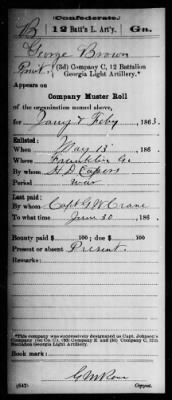 Confederate.
B 12 Batt'l L. Art'y. Ga.
George Brown
Privt., (3d) Company C, 12 Battalion
Georgia Light Artillery.*
Appears on
Company Muster Roll
of the organization named above,
for Jany & Feby, 1863.
Enlisted:
When May 13, 186
Where Franklin Ga.
By whom H. D. Capers
Period war
Last paid:
By whom Capt G. W. Crane
To what time June 30, 186
Bounty paid $ 100; due $ 100
Present or absent Present.
Remarks:
*This company was successively designated as Capt. Johnson's
Company (1st Co. C), (3d) Company C, 12th
Battalion Georgia Light Artillery.
Book mark:
(642) Copyist.